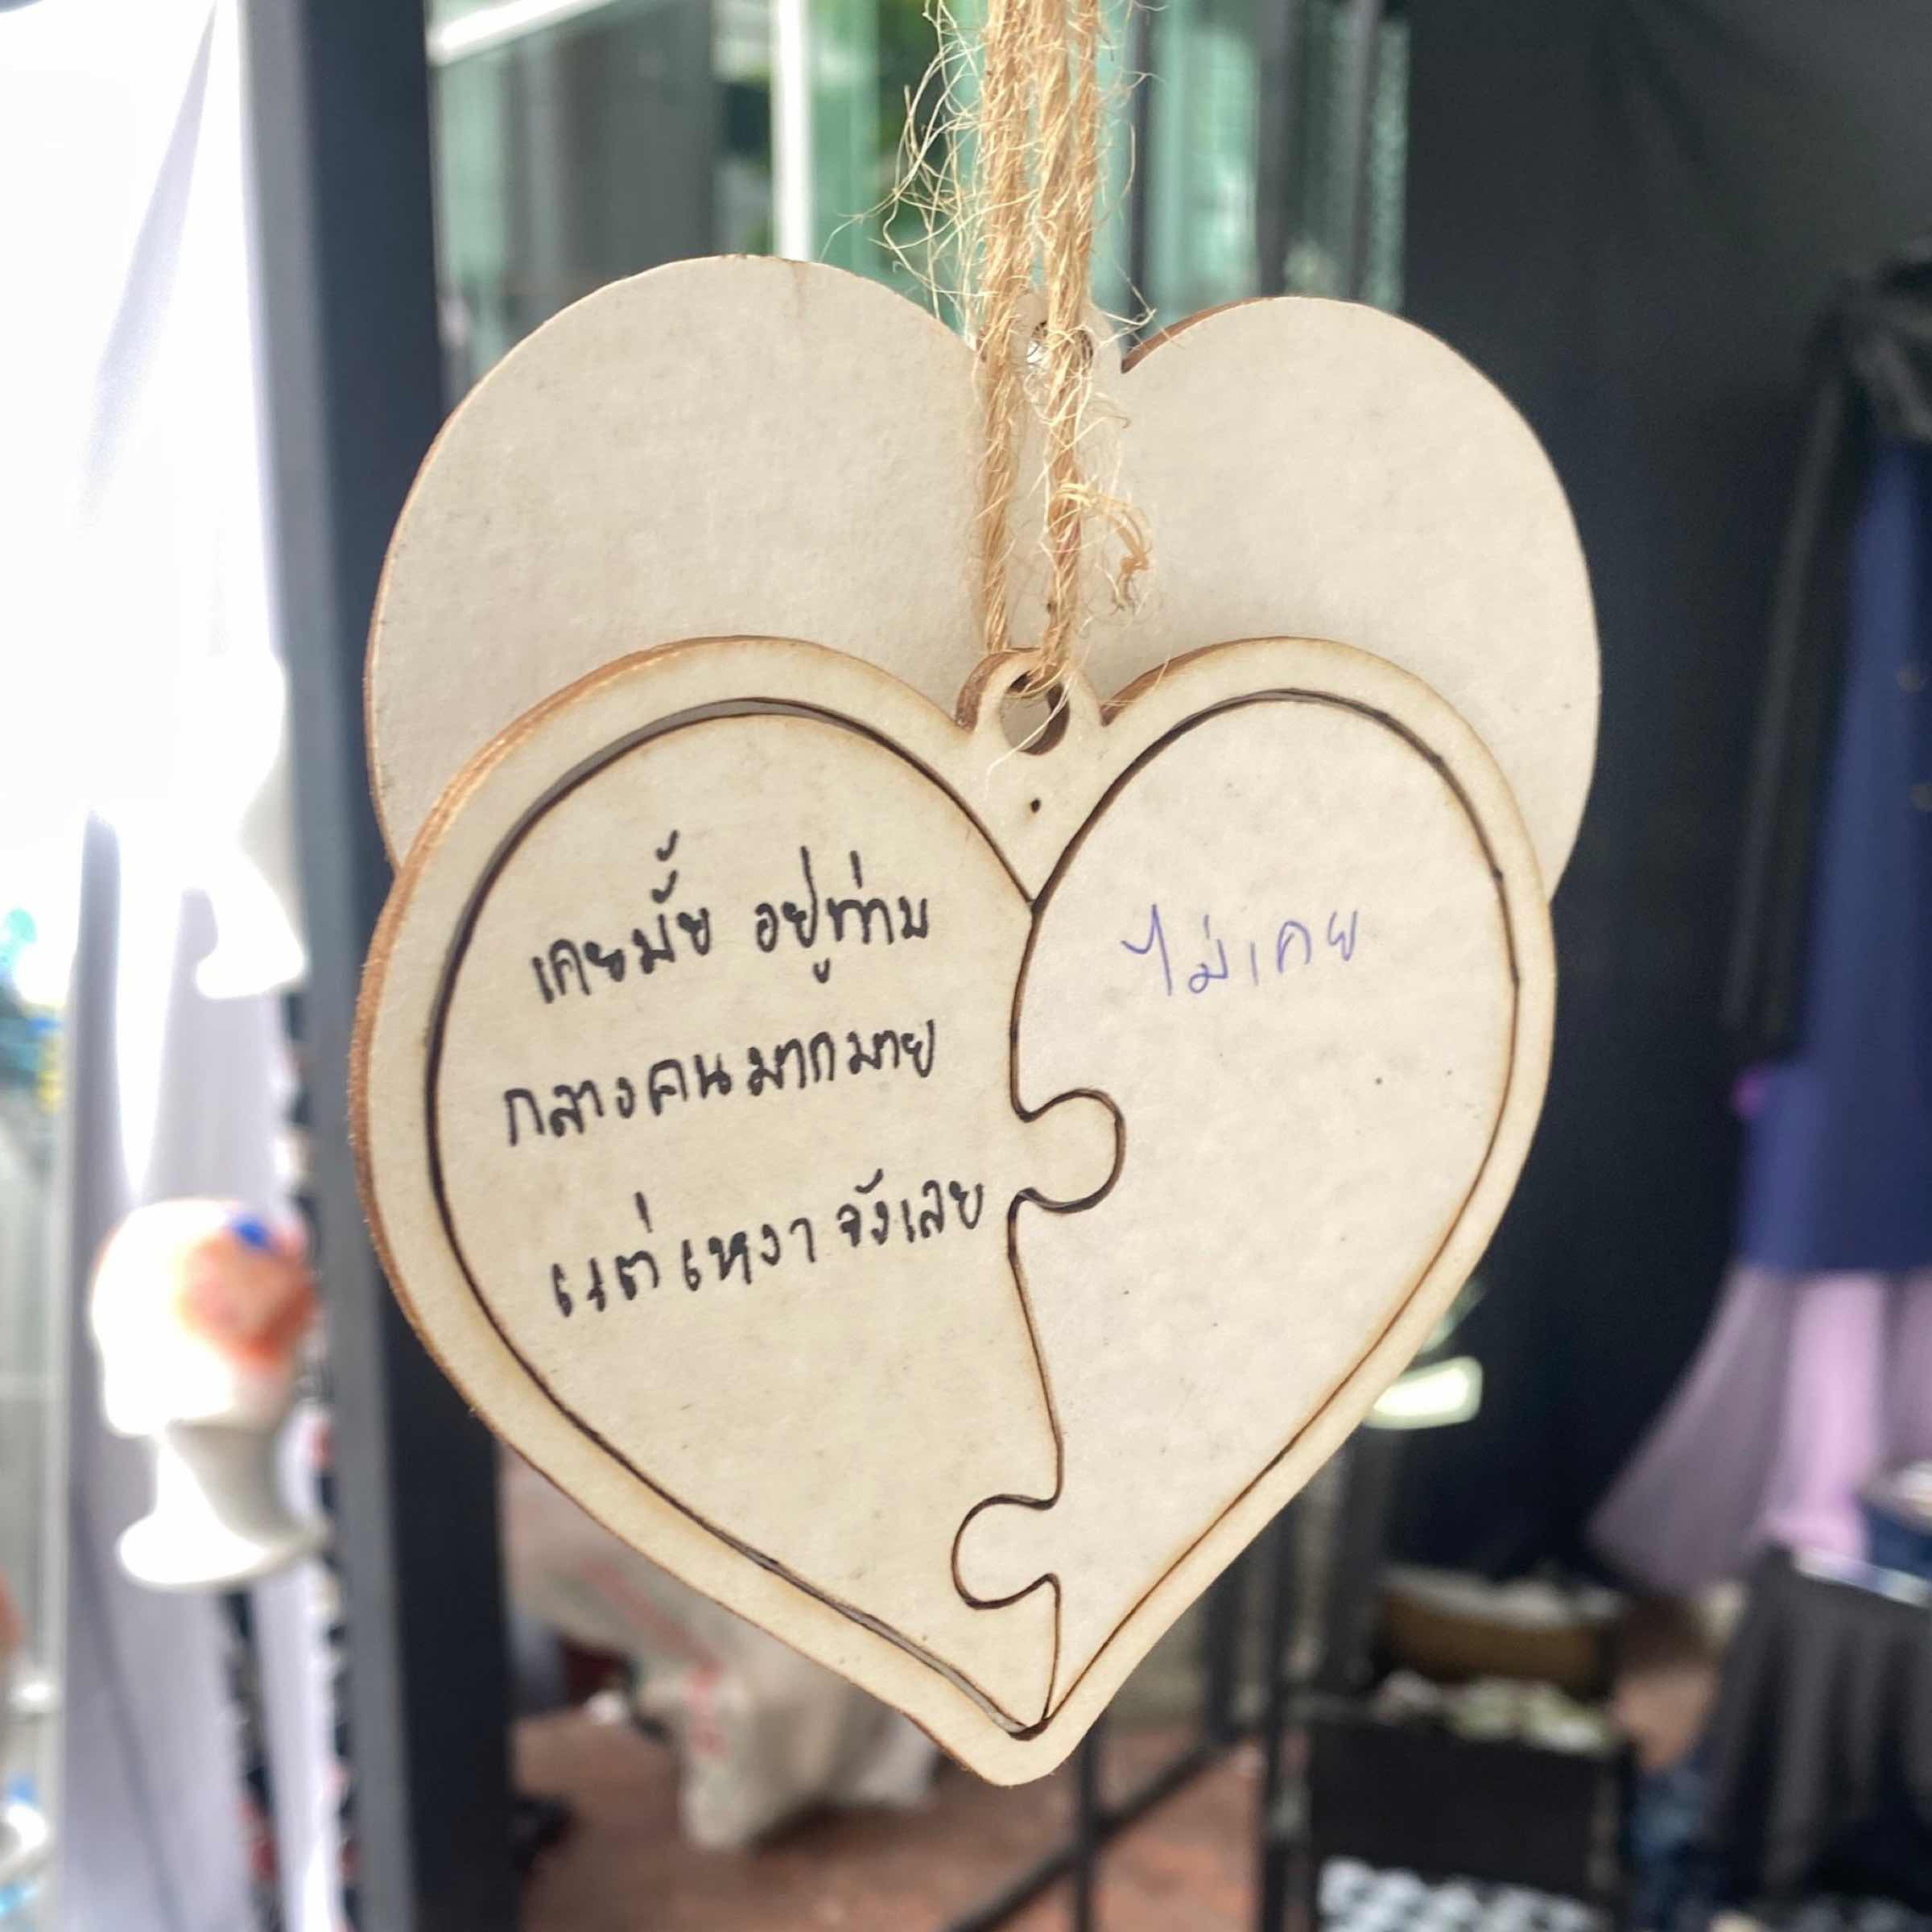 เคยมั้ย อยู่ท่าม
กลางคนมากมาย
แต่เหงาจังเลย
ไม่เคย